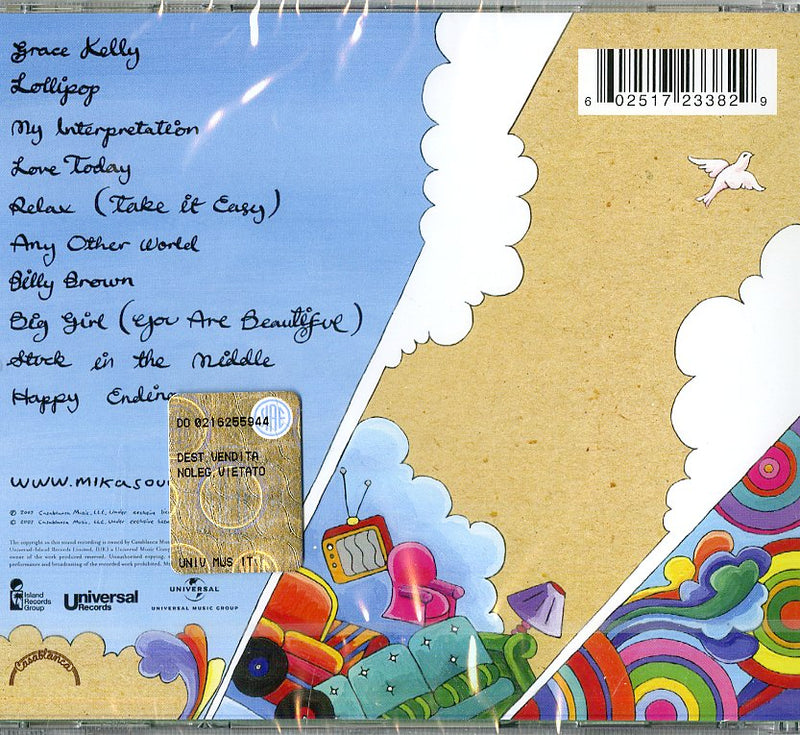 Grace Kelly
Lollipop
My Interpretation
Love Today
Relax (Take it Easy)
Any Other World
Billy Brown
Big Girl (You Are Beautiful)
Stuck in the Middle
Happy Ending
www.mikasou
℗ 2007 Casablanca Music, LLC, under exclusive
© 2007 Casablanca Music, LLC, under exclusive
The copyright in this sound recording is owned by Casablanca
Universal-Island Records Limited, (U.K.) a Universal Music
owner of the work produced reserved. Unauthorised copying,
performance and broadcasting of the recorded work prohibited.
Island
Records
Group
Universal
Records
UNIVERSAL
UNIVERSAL MUSIC GROUP
Casablanca
DO 0216255944
DEST.VENDITA
NOLEG.VIETATO
UNIV MUS IT
6 02517 23382 9